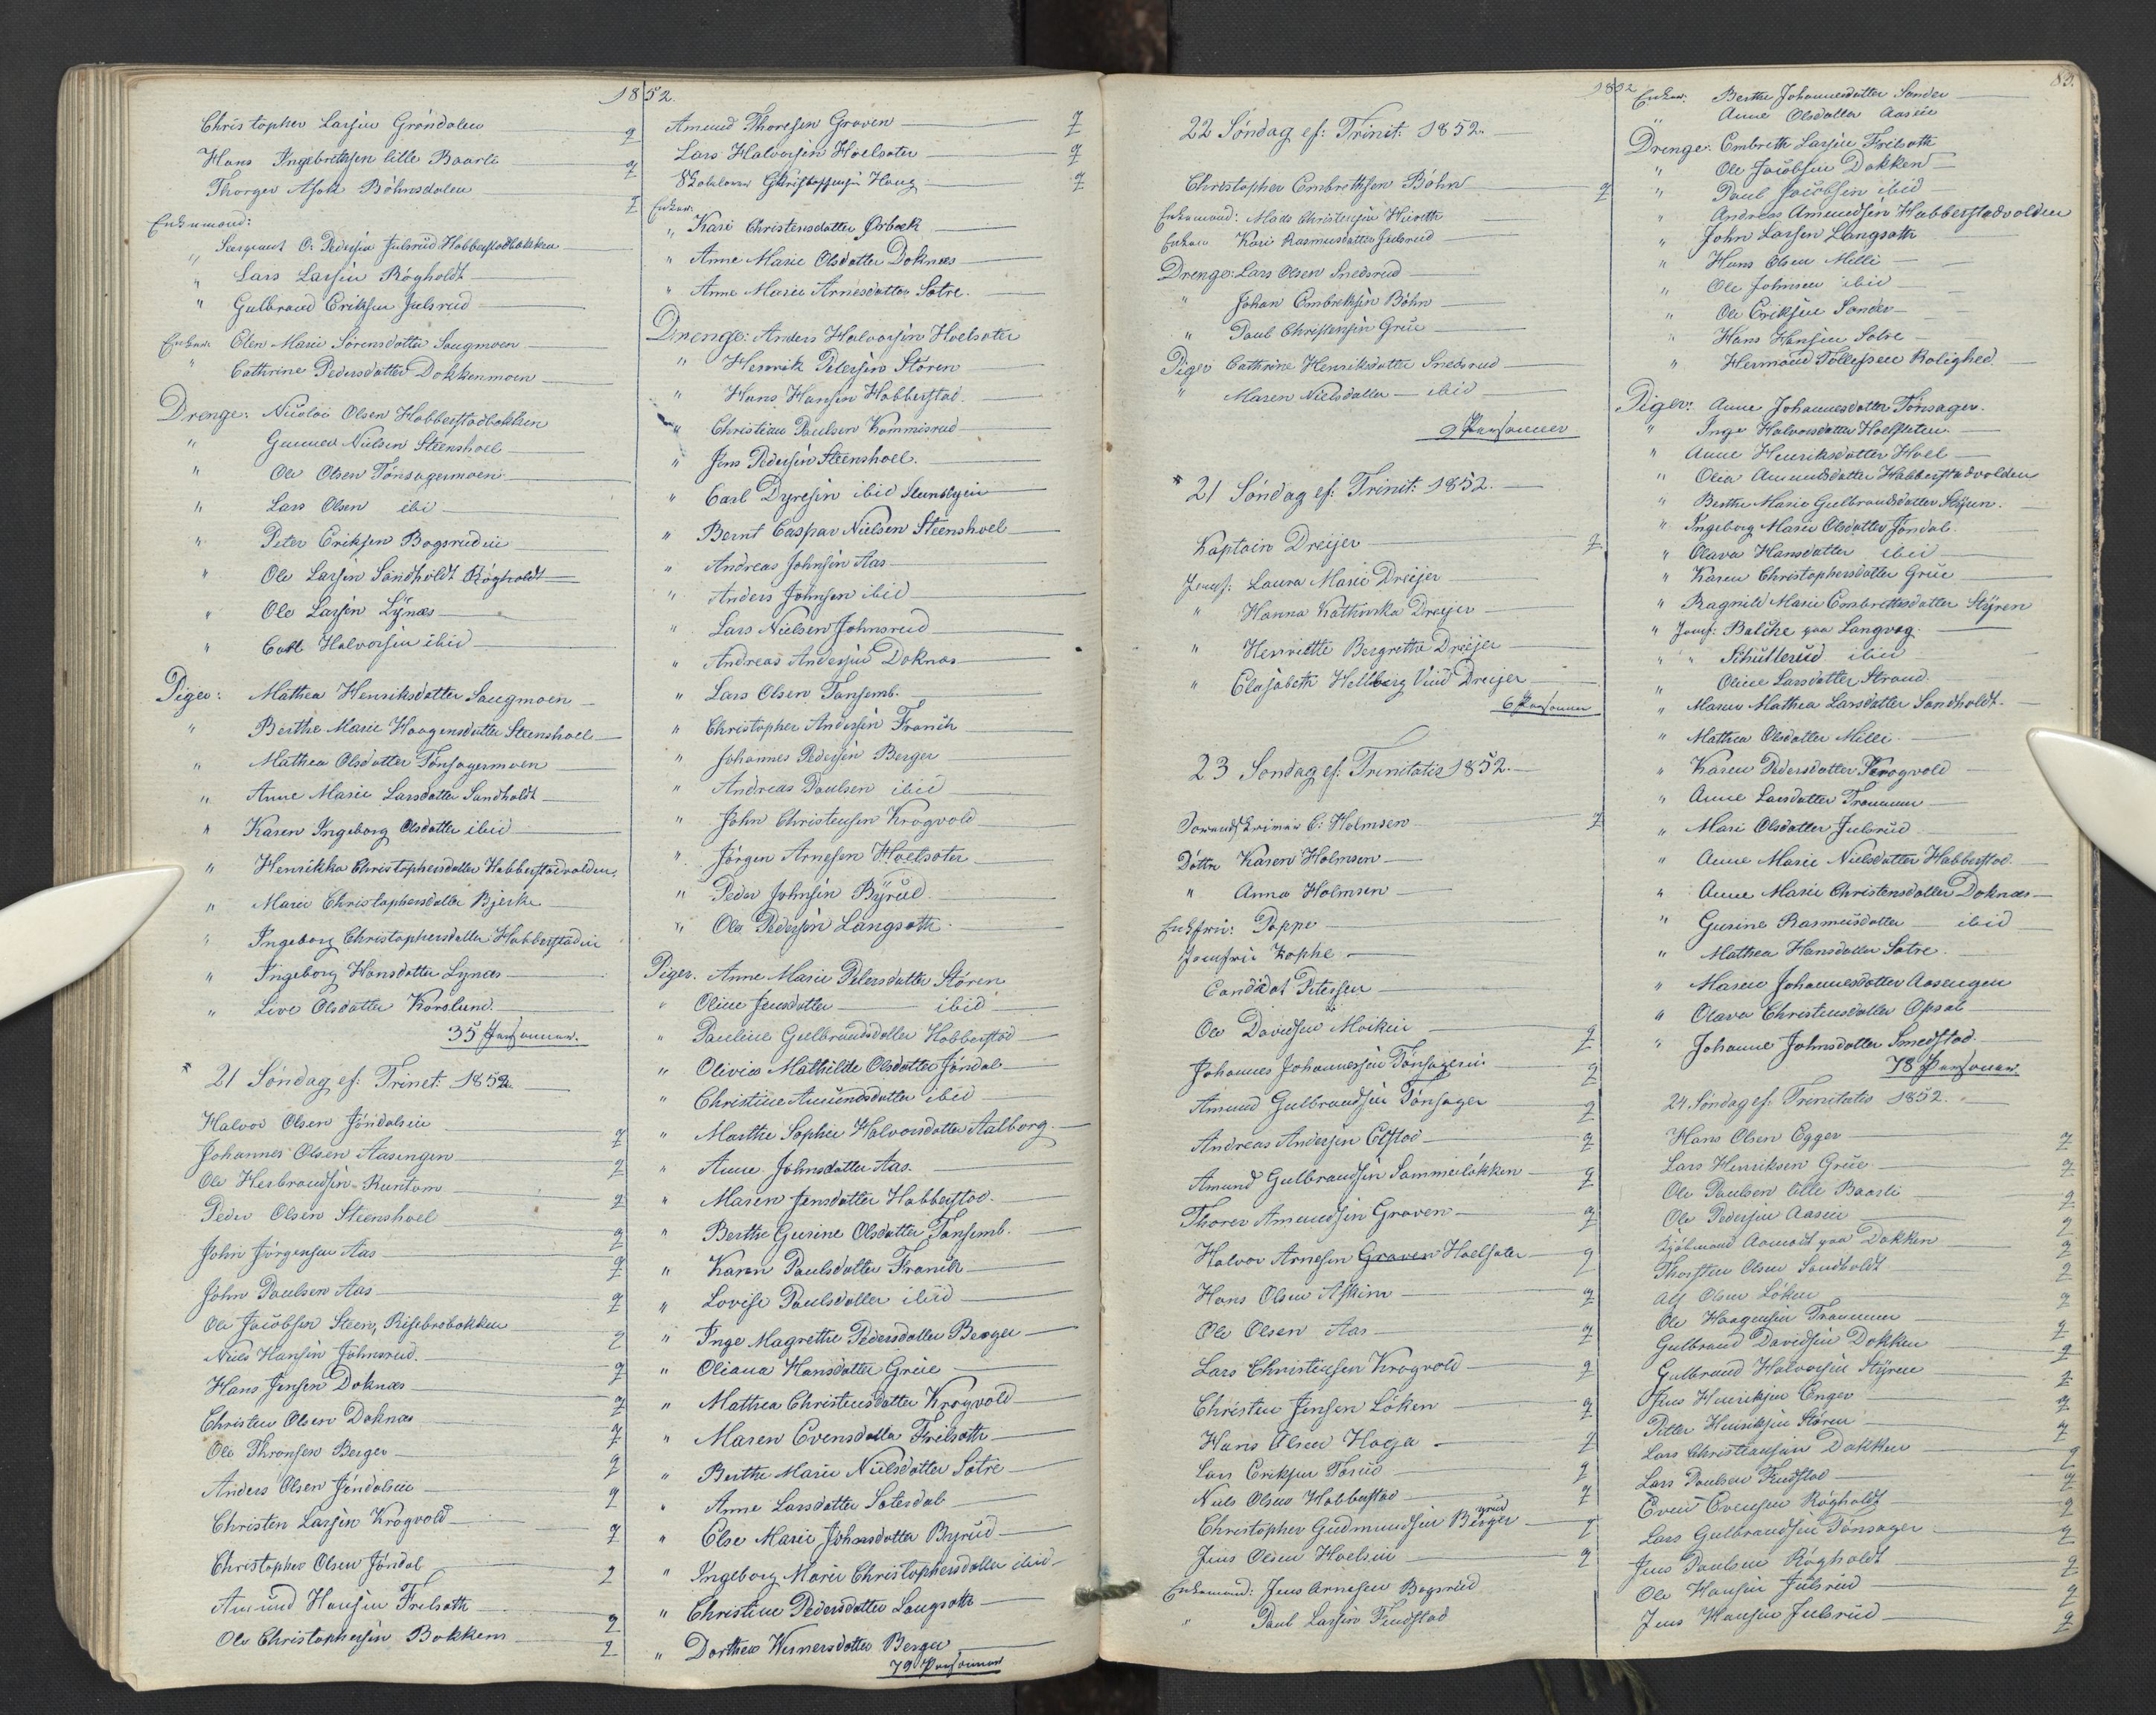 1852.
Christopher Larsen Gröndalen q
Hans Ingebretsen lille Baarli q
Thorger Böhnsdalen q
Enkemænd:
„ Sergeant O: Pedersen Julsrud Habberstadbakken
„ Lars Larsen Rögholdt
„ Gulbrand Eriksen Julsrud
Enker: Elen Marie Sörensdatter Saugmoen
„ Cathrine Pedersdatter Dokkenmoen
Drenge: Nicolai Olsen Habberstadbakken
„ Gunner Nielsen Steenshoel
„ Ole Olsen Tönsagermoen
„ Lars Olsen ibi
„ Peter Eriksen Bogsrudeie
„ Ole Larsen Sandholdt Rögholdt
„ Ole Larsen Lynæs
„ Carl Halvorsen ibid
Piger: Mathea Henriksdatter Saugmoen
„ Berthe Marie Haagensdatter Steenshoel
„ Mathea Olsdatter Tönsagermoen
„ Anne Marie Larsdatter Sandholdt
„ Karen Ingeborg Olsdatter ibid
„ Henrikka Christophersdatter Habberstadvolden
„ Marie Christophersdatter Bjerke
„ Ingeborg Christophersdatter Habberstadeie
„ Ingeborg Hansdatter Lynæs
„ Live Olsdatter Korslund.
35 Personer.
* 21 Söndag ef: Trinit: 1852.
Halvor Olsen Jöndalseie q
Johannes Olsen Aasengen q
Ole Herbrandsen Runtom q
Peder Olsen Steenshoel q
John Jörgensen Aas q
John Paulsen Aas q
Ole Jacobsen Steen, Risebrobakken q
Niels Hansen Johnsrud. q
Hans Jensen Doknæs q
Christen Olsen Doknæs q
Ole Thronsen Berger q
Anders Olsen Jöndalseie q
Christen Larsen Krogvold q
Christopher Olsen Jöndal q
Amund Hansen Frilsæth q
Ole Christophersen Bakken q
Amund Thoresen Graven q
Lars Halvorsen Hoelsæter q
Skolelærer Christophersen Haug q
Enker:
„ Kari Christensdatter Ørbæk
„ Anne Marie Olsdatter Doknæs
„ Anne Marie Arnesdatter Sætre.
Drenge: Anders Halvorsen Hoelsæter
„ Henrik Petersen Stören
„ Hans Hansen Habberstad.
„ Christian Paulsen Kommisrud
„ Jens Pedersen Steenshoel.
„ Carl Dyresen ibid Steensbyeie
„ Bernt Caspar Nielsen Steenshoel
„ Andreas Johnsen Aas
„ Anders Johnsen ibid
„ Lars Nielsen Johnsrud
„ Andreas Andersen Doknæs
„ Lars Olsen Tansemb.
„ Christopher Andersen Franch
„ Johannes Pedersen Berger
„ Andreas Paulsen ibid
„ John Christensen Krogvold
„ Jörgen Arnesen Hoelsæter
„ Peder Johnsen Byrud
„ Ole Pedersen Langsæth
Piger. Anne Marie Petersdatter Stören
„ Oline Jensdatter ibid
„ Pauline Gulbrandsdatter Habberstad
„ Olivia Mathilde Olsdatter Jöndal
„ Christine Amundsdatter ibid
„ Marthe Sophie Halvorsdatter Aalborg.
„ Anne Johnsdatter Aas.
„ Maren Jensdatter Habberstad.
„ Berthe Gurine Olsdatter Tansemb.
„ Karen Paulsdatter Franch
„ Lovise Paulsdatter ibid
„ Inge Magrethe Pedersdatter Berger
„ Oliana Hansdatter Grüe
„ Mathea Christensdatter Krogvold
„ Maren Evensdatter Frilsæth
„ Berthe Marie Nielsdatter Sætre
„ Anne Larsdatter Sætersdal
„ Else Marie Johnsdatter Byrud
„ Ingeborg Marie Christophersdatter ibid
„ Christine Pedersdatter Langsæth
„ Dorthea Wernersdatter Berger
79 Personer
1852 83.
22 Söndag ef: Trinit: 1852.
Christopher Embrethsen Böhn q
Enkemænd: Mads Christensen
Enker Kari Rasmusdatter Julsrud
Drenge: Lars Olsen Snedsrud
„ Johan Embrektsen Böhn
„ Paul Christensen Grüe
Piger Cathrine Henriksdatter Snedsrud
„ Maren Nielsdatter ibid
9 Personer
* 21 Söndag ef: Trinit: 1852.
Kaptain Dreijer q
Jomf: Laura Marie Dreijer
„ Hanna Kathinka Dreijer
„ Henriette Bergrethe Dreijer
„ Elisabeth Hellberg Viid Dreijer
6 Personer
23 Söndag ef: Trinitatis 1852.
Sorenskriver C: Holmsen q
Döttre Karen Holmsen
„ Anna Holmsen
Enkefrü: Poppe
Jomfrü Kophe
Candidat Petersen
Ole Davidsen Moikeie q
Johannes Johannesen Tönsagereie q
Amund Gulbrandsen Tönsager q
Andreas Andersen Elstad q
Amund Gulbrandsen Sammeilökken q
Thorer Amundsen Graven q
Halvor Arnesen Graven Hoelsæter q
Hans Olsen Askim q
Ole Olsen Aas q
Lars Christensen Krogvold q
Christen Jensen Löken q
Hans Olsen Haga q
Lars Eriksen Tosrud q
Niels Olsen Habberstad q
Christopher Gudmundsen Berger yrud q
Jens Olsen Hoelseie q
Enkemænd: Jens Arnesen Bogsrud
„ Paul Larsen Findstad
Enker: Berthe Johannesdatter Sander
„ Anne Olsdatter Aaseie
Drenge: Embreth Larsen Frilsæth
„ Ole Jacobsen Dokken
„ Paul Jacobsen ibid
„ Andreas Amundsen Habberstadvolden
„ John Larsen Langsæth
„ Hans Olsen Milli
„ Ole Johnsen ibid
„ Ole Eriksen Sander
„ Hans Hansen Sætre
„ Hermand Tollefsen Rolighed.
Piger: Anne Johannesdatter Tönsager.
„ Inge Halvorsdatter Hoelsæter.
„ Anne Henriksdatter Hoel
„ Olea Amundsdatter Habberstadvolden
„ Berthe Marie Gulbrandsdatter Styren.
„ Ingeborg Marie Olsdatter Jöndal.
„ Olava Hansdatter ibid
„ Karen Christophersdatter Grüe
„ Ragnild Marie Embrethsdatter Styren
„ Jomf: Balche paa Langvag.
„ „ Schütterud ibid
„ Oline Larsdatter Strand.
„ Maren Mathea Larsdatter Sandholdt.
„ Mathea Olsdatter Milli
„ Karen Pedersdatter Krogvold
„ Anne Larsdatter Trannum
„ Mari Olsdatter Julsrud
„ Anne Marie Nielsdatter Habberstad.
„ Anne Marie Christensdatter Doknæs
„ Gurine Rasmusdatter ibid
„ Mathea Hansdatter Sætre.
„ Maren Johannesdatter Aasengen
„ Olava Christensdatter Opsal
„ Johanne Johnsdatter Smedstad.
78 Personer
24 Söndag ef: Trinitatis 1852.
Hans Olsen Egger q
Lars Henriksen Grüe q
Ole Paulsen lille Baarli q
Ole Pedersen Aaseie q
Kjöbmand Aamodt paa Dokken q
Thorsten Olsen Sandholdt q
Alf Olsen Löken q
Ole Haagensen Trannum q
Gulbrand Davidsen Dokken q
Gulbrand Halvorsen Styren q
Jens Henriksen Enger q
Petter Henriksen Stören q
Lars Christiansen Dokken q
Lars Paulsen Findstad q
Even Evensen Rögholdt q
Lars Gulbrandsen Tönsager q
Jens Paulsen Rögholdt q
Ole Hansen Julsrud q
Jens Hansen Julsrud q